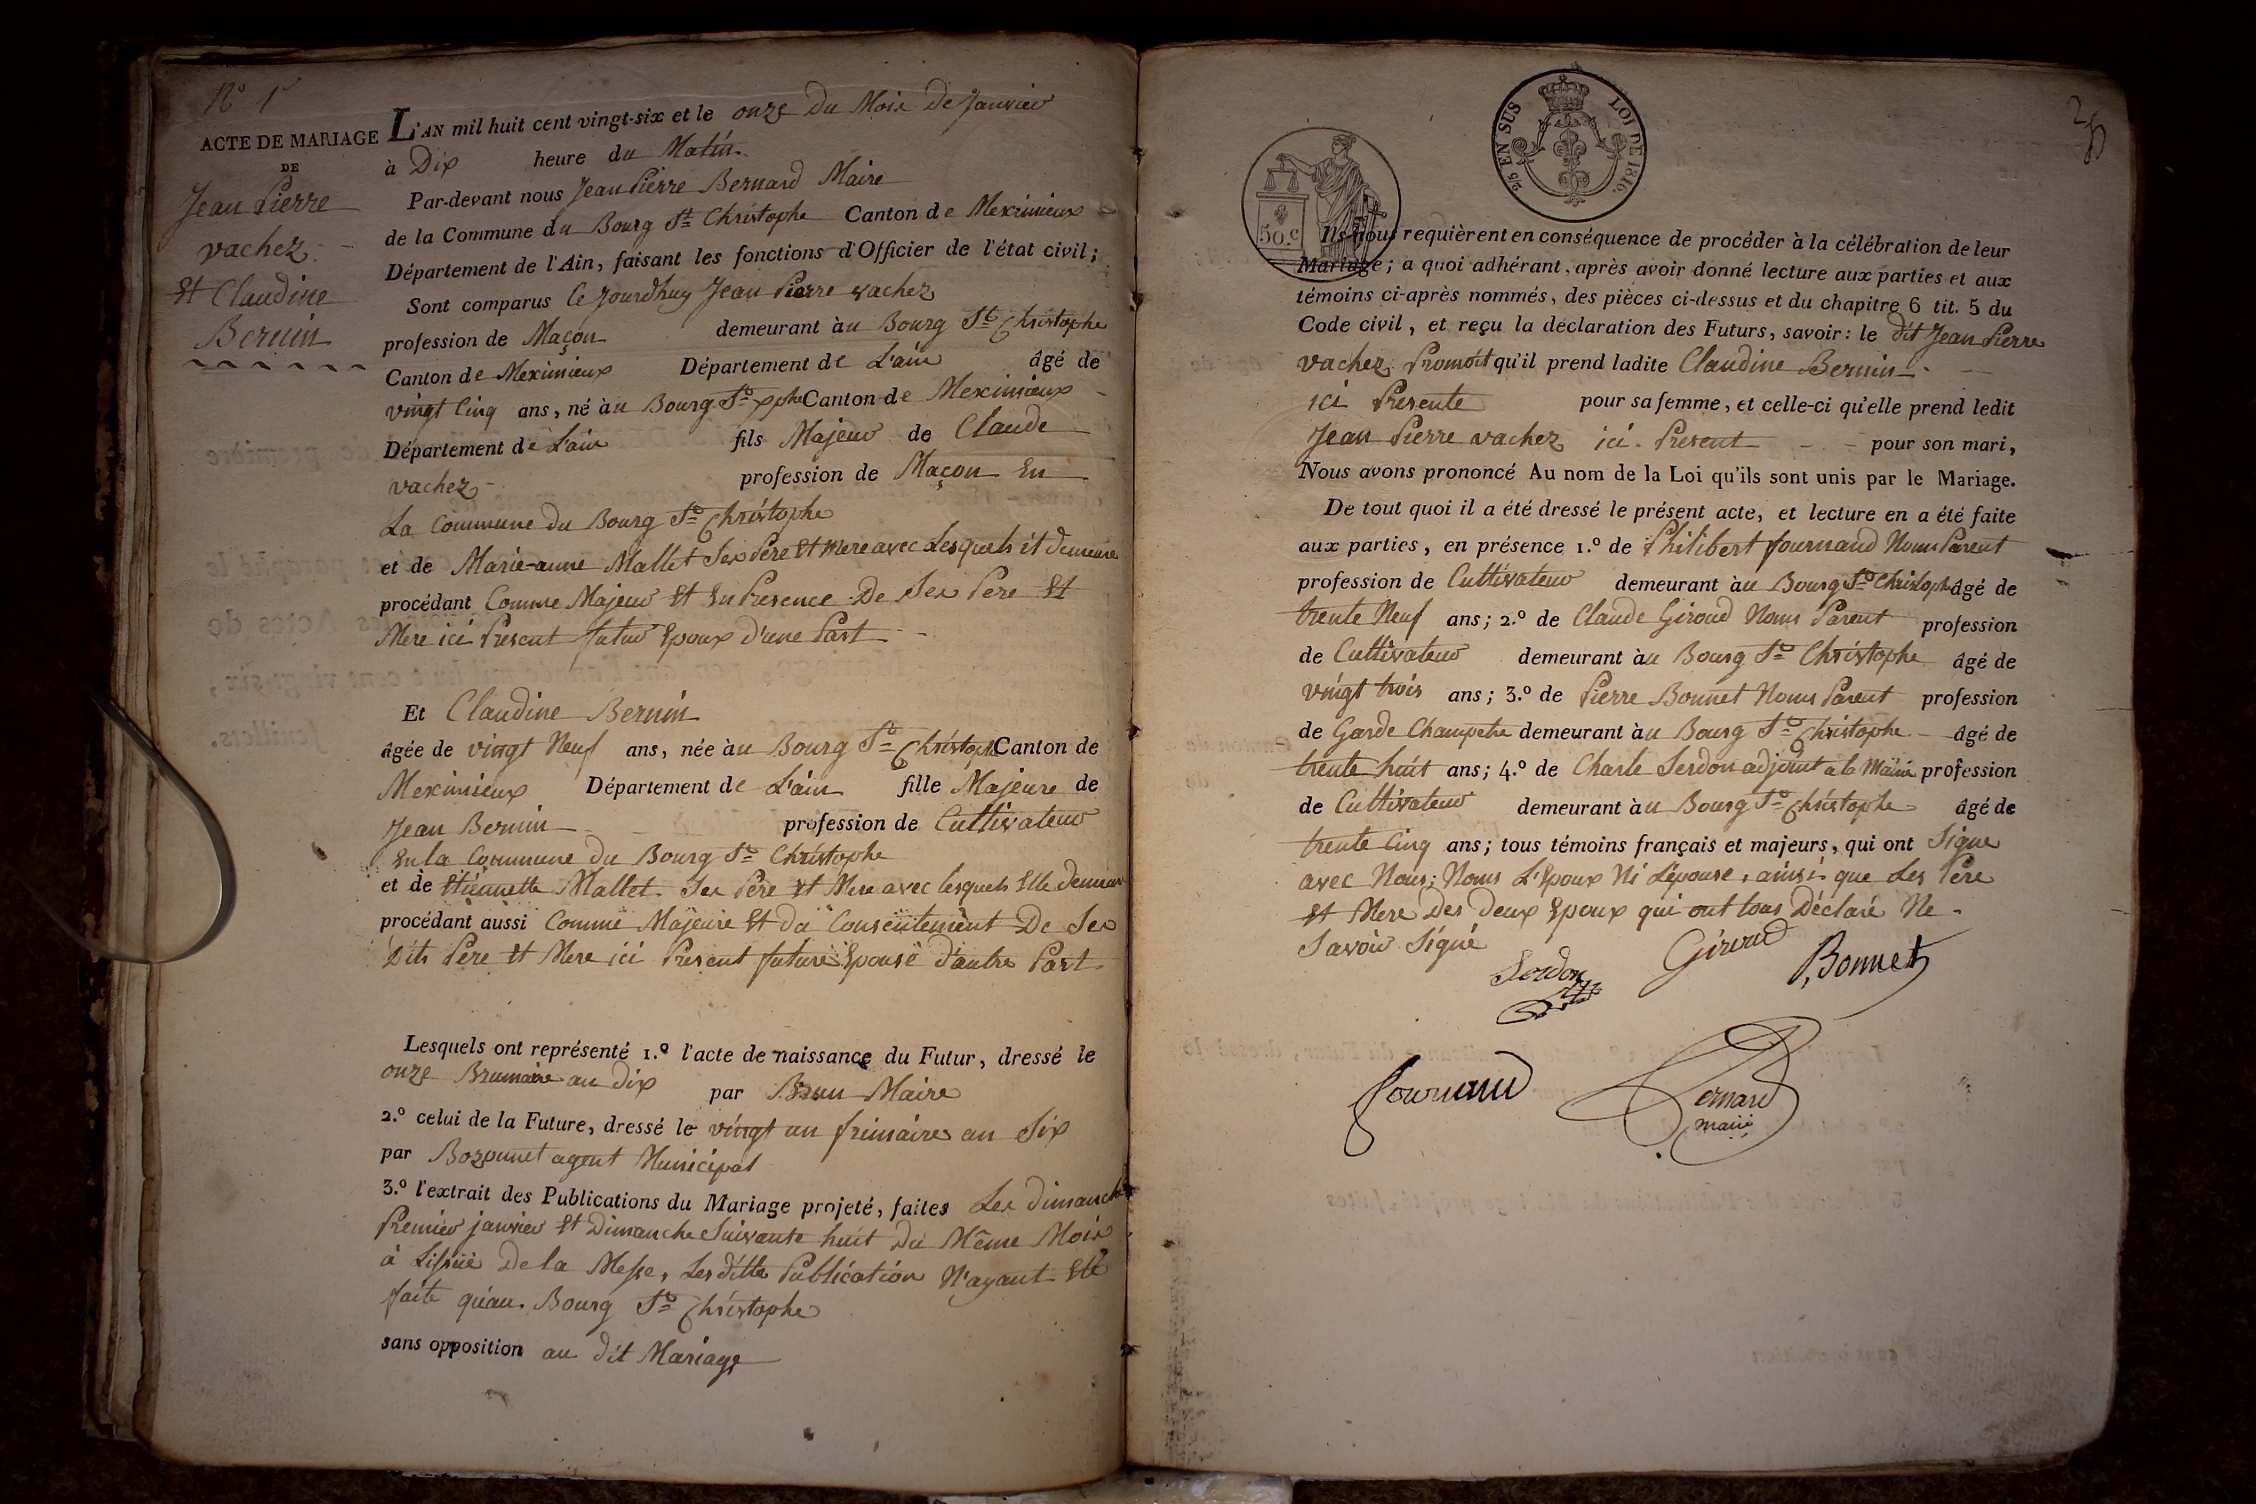 N.º 1.er
ACTE DE MARIAGE
DE
Jean Pierre
vachez
Et Claudine
Bernin
L'AN mil huit cent vingt-six et le onze du Mois de Janvier
à Dix heure du Matin
Par-devant nous Jean Pierre Bernard Maire
de la Commune du Bourg St Christophe Canton de Meximieux
Département de l'Ain, faisant les fonctions d'Officier de l'état civil;
Sont comparus Ce Jourdhuy Jean Pierre vachez
profession de Maçon demeurant àu Bourg St Christophe
Canton de Meximieux Département de L'ain âgé de
vingt Cinq ans, né àu Bourg St xphe Canton de Meximieux
Département de L'ain fils Majeur de Claude
vachez profession de Maçon En
La Commune du Bourg St Christophe
et de Marie-anne Mallet Ses Père Et Mere avec Lesquels il demeure
procédant Comme Majeur Et En Presence De Ses Pere Et
Mere ici Present futur Epoux d'une Part
Et Claudine Bernin
âgée de vingt Neuf ans, née àu Bourg St Christophe Canton de
Meximieux Département de L'ain fille Majeure de
Jean Bernin profession de Cultivateur
En la Commune du Bourg St Christophe
et de Etiennette Mallet Ses Père Et Mere avec lesquels Elle demeure
procédant aussi Comme Majeure Et du Consentement De Ses
Dits Père Et Mere ici Present future Epouse d'autre Part
Lesquels ont représenté 1.º l'acte de naissance du Futur, dressé le
onze Brumaire an dix par Brun Maire
2.º celui de la Future, dressé le vingt un frimaire an Six
par Bozonnet agent Municipal
3.º l'extrait des Publications du Mariage projeté, faites Les dimanche
Premier janvier Et Dimanche Suivante huit Du Même Mois
à Lissüe De la Messe, Lesditte Publication N'ayant Eté
faite qu'au Bourg St Christophe
sans opposition au dit Mariage
2/5 EN SUS
LOI DE 1816.
50.C
Ils nous requièrent en conséquence de procéder à la célébration de leur
Mariage; a quoi adhérant, après avoir donné lecture aux parties et aux
témoins ci-après nommés, des pièces ci-dessus et du chapitre 6 tit. 5 du
Code civil, et reçu la déclaration des Futurs, savoir: le dit Jean Pierre
vachez Promoit qu'il prend ladite Claudine Bernin
ici Presente pour sa femme, et celle-ci qu'elle prend ledit
Jean Pierre vachez ici Present pour son mari,
Nous avons prononcé Au nom de la Loi qu'ils sont unis par le Mariage.
De tout quoi il a été dressé le présent acte, et lecture en a été faite
aux parties, en présence 1.º de Philibert fournand Nom Parent
profession de Cultivateur demeurant àu Bourg St Christophe âgé de
trente Neuf ans; 2.º de Claude Giroud Nom Parent profession
de Cultivateur demeurant àu Bourg St Christophe âgé de
vingt trois ans; 3.º de Pierre Bonnet Nom Parent profession
de Garde Champetre demeurant àu Bourg St Christophe âgé de
trente huit ans; 4.º de Charle Serdon adjoint a la Mairie profession
de Cultivateur demeurant àu Bourg St Christophe âgé de
trente Cinq ans; tous témoins français et majeurs, qui ont Signe
avec Nous; Noms L'Epoux Ni L'épouse, ainsi que Les Père
Et Mere Des deux Epoux qui ont tous Déclaré Ne
Savoir Signé
Serdon Giroud P, Bonnet
fournand Bernard
maire